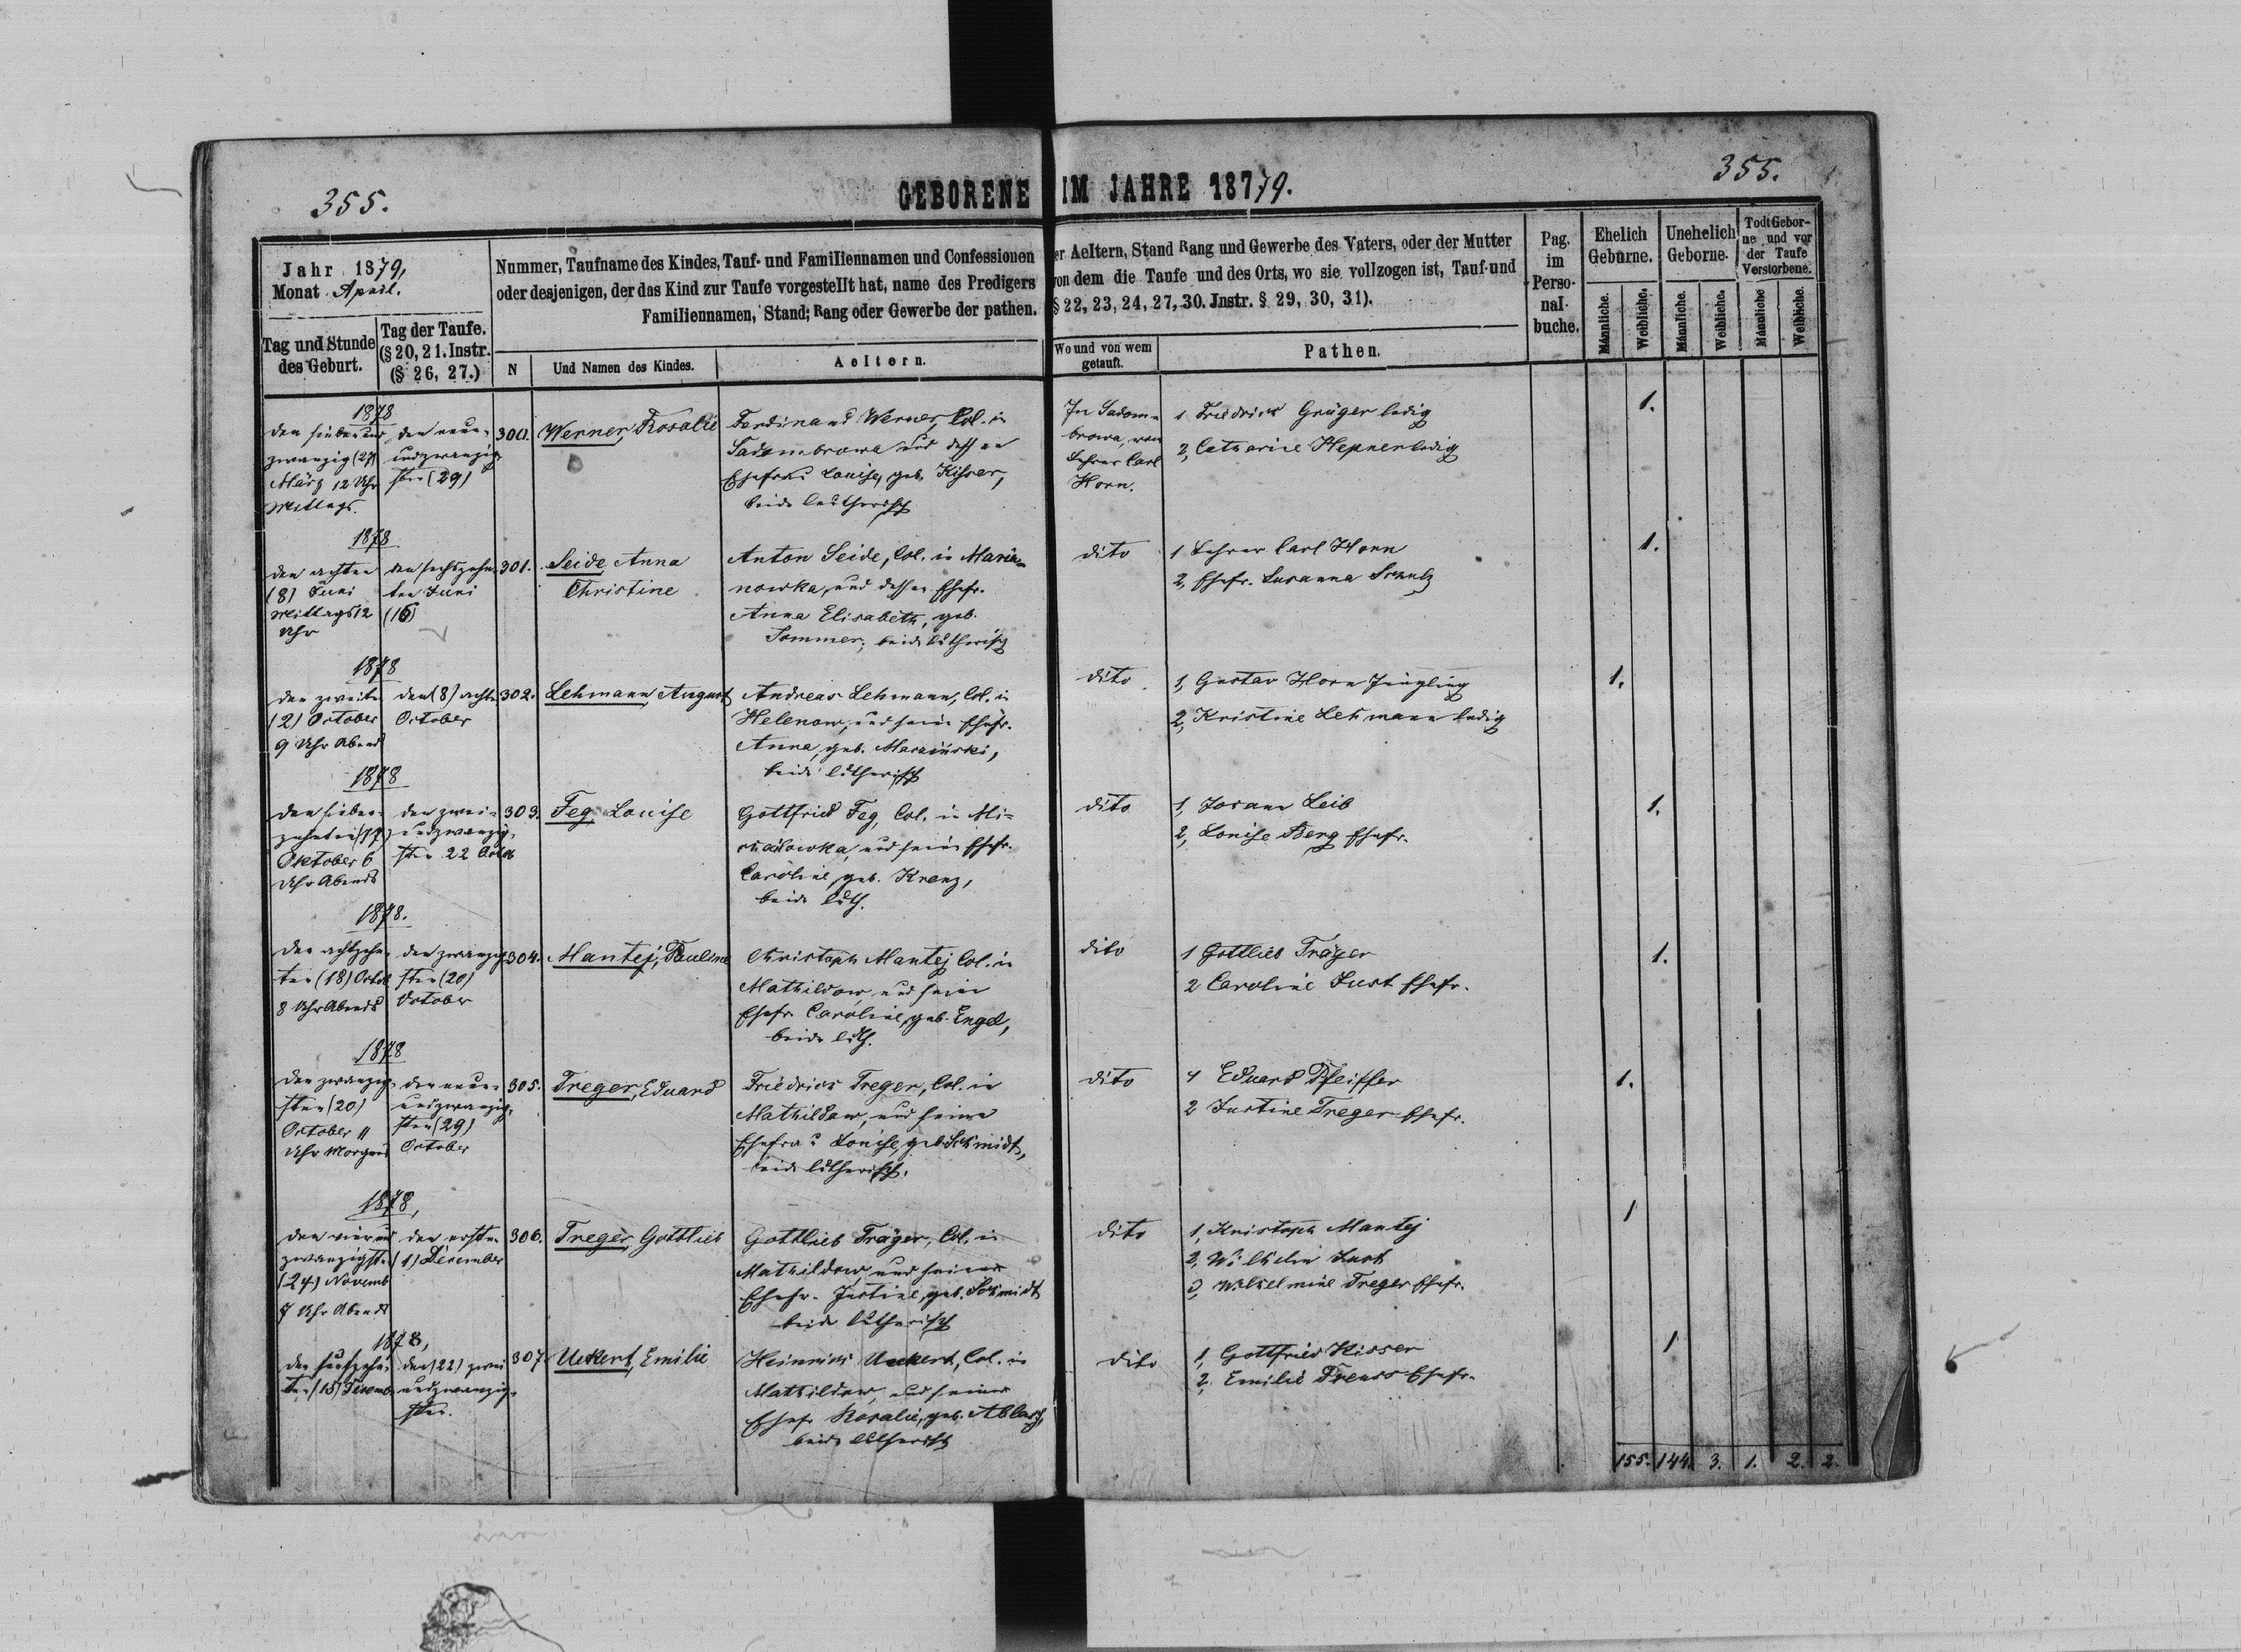 355.
GEBORENE IM JAHRE 18779.
355.
Jahr 1879,
Monat April.
Tag und Stunde
des Geburt.
Tag der Taufe.
(§ 20, 21. Instr.
(§ 26, 27.)
Nummer, Taufname des Kindes, Tauf- und Familiennamen und Confessionen
oder desjenigen, der das Kind zur Taufe vorgestellt hat, name des Predigers
Familiennamen, Stand; Rang oder Gewerbe der pathen.
N
Und Namen des Kindes.
Aeltern.
er Aeltern, Stand Rang und Gewerbe des Vaters, oder der Mutter
von dem die Taufe und des Orts, wo sie vollzogen ist, Tauf- und
§ 22, 23, 24, 27, 30. Jnstr. § 29, 30, 31).
Wo und von wem
getauft.
Pathen.
Pag.
im
Perso-
nal-
buche.
Ehelich
Geburne.
Unehelich
Geborne.
Todt Gebor-
ne und vor
der Taufe
Verstorbene.
Männliche.
Weibliche.
Männliche.
Weibliche.
Männliche
Weibliche.
1878
den sieben und
zwanzig (27)
März 12 Uhr
Mittags.
den neun-
undzwanzig
sten (29)
300.
Werner, Rosalie
Ferdinand Werner, Col. in
Sadombrowa und dessen
Ehefrau Louise, geb. Kisser,
beide lutherisch
In Sadom-
browa, von
Lehrer Carl
Horn.
1 Friedrich Grüger ledig
2, Catharine Hepner ledig
1.
1878
den achten
(8) Juni
Mittags 12
Uhr
den sechszehn-
ten Juni
(16)
301.
Seide Anna
Christine
Anton Seide, Col. in Maria-
nowka, und dessen Ehefr.
Anna Elisabeth, geb.
Sommer, beide lutherisch
dito
1 Lehrer Carl Horn
2, Ehefr. Susanna Schulz
1.
1878
den zweiten
(2) October
9 Uhr Abend
den (8) achten
October
302.
Lehmann, August
Andreas Lehmann, Col. in
Helenow, und seine Ehefr.
Anna, geb.
beide lutherisch
dito
1, Gustav Horn Jüngling
2, Kristine Lehmann ledig
1.
1878
den sieben-
zehnten (17)
Oktober 6
Uhr Abends
den zwei-
undzwanzig-
sten 22
303.
Feg Louise
Gottfried Feg, Col. in Mi-
und seine Ehefr.
Caroline, geb. Krenz,
beide luth.
dito
1, Johann Leib
2, Louise Berg Ehefr.
1.
1878.
den achtzehn-
ten (18) Octob
8 Uhr Abends
den zwanzig-
sten (20)
October
304.
Mantej, Pauline
Christoph Mantej Col. in
Mathildow, und seine
Ehefr. Caroline, geb. Engel,
beide luth.
dito
1 Gottlieb Träger
2 Caroline Just Ehefr.
1.
1878
den zwanzig-
sten (20)
October 11
Uhr Morgens
den neun-
undzwanzig-
sten (29)
October
305.
Treger, Eduard
Friedrich Treger, Col. in
Mathildow, und seine
Ehefrau Louise, geb. Schmidt,
beide lutherisch.
dito
1 Eduard Pfeiffer
2 Justine Treger Ehefr.
1.
1878,
den vier und
zwanzigsten
(24) Novemb
7 Uhr Abends
den ersten
(1) December
306.
Treger, Gottlieb
Gottlieb Träger, Col. in
Mathildow, und seine
Ehefr. Justine, geb. Schmidt
beide lutherisch
dito
1, Kristoph Mantej
2, Wilhelm Just
3, Wilhelmine Treger Ehefr.
1
1878,
den funfzehn-
ten (15)
den (22) zwei
undzwanzig-
sten.
307
Uckert, Emilie
Heinrich Uckert, Col. in
Mathildow, und seine
Ehefr Rosalie, geb.
beide lutherisch
dito
1, Gottfried Kisser
2, Emilie Ehefr.
1
155. 144. 3. 1. 2. 2.